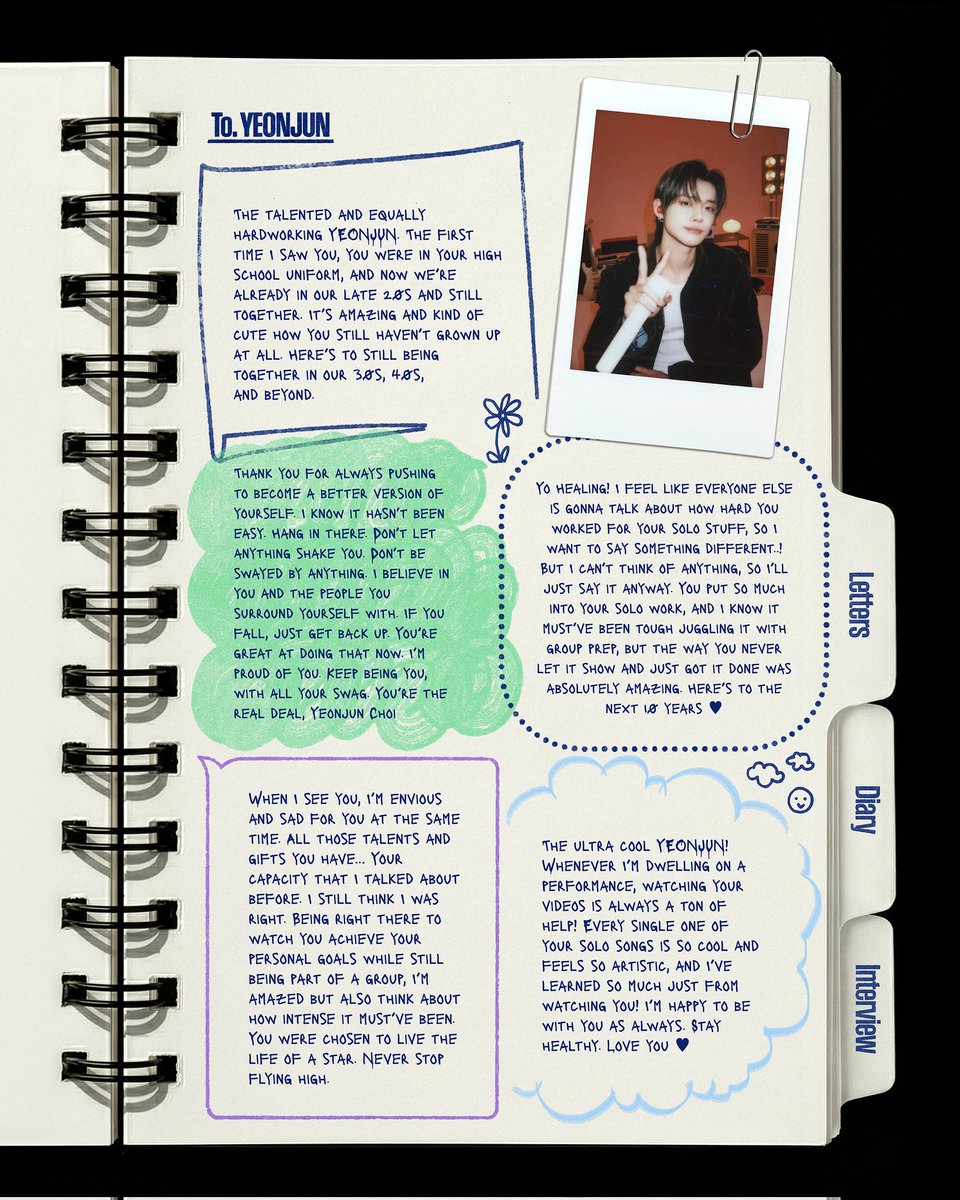 To. YEONJUN
THE TALENTED AND EQUALLY
HARDWORKING YEONJUN. THE FIRST
TIME I SAW YOU, YOU WERE IN YOUR HIGH
SCHOOL UNIFORM, AND NOW WE'RE
ALREADY IN OUR LATE 20S AND STILL
TOGETHER. IT'S AMAZING AND KIND OF
CUTE HOW YOU STILL HAVEN'T GROWN UP
AT ALL. HERE'S TO STILL BEING
TOGETHER IN OUR 30S, 40S,
AND BEYOND.
THANK YOU FOR ALWAYS PUSHING
TO BECOME A BETTER VERSION OF
YOURSELF. I KNOW IT HASN'T BEEN
EASY. HANG IN THERE. DON'T LET
ANYTHING SHAKE YOU. DON'T BE
SWAYED BY ANYTHING. I BELIEVE IN
YOU AND THE PEOPLE YOU
SURROUND YOURSELF WITH. IF YOU
FALL, JUST GET BACK UP. YOU'RE
GREAT AT DOING THAT NOW. I'M
PROUD OF YOU. KEEP BEING YOU,
WITH ALL YOUR SWAG. YOU'RE THE
REAL DEAL, YEONJUN CHOI
YO HEALING! I FEEL LIKE EVERYONE ELSE
IS GONNA TALK ABOUT HOW HARD YOU
WORKED FOR YOUR SOLO STUFF, SO I
WANT TO SAY SOMETHING DIFFERENT..!
BUT I CAN'T THINK OF ANYTHING, SO I'LL
JUST SAY IT ANYWAY. YOU PUT SO MUCH
INTO YOUR SOLO WORK, AND I KNOW IT
MUST'VE BEEN TOUGH JUGGLING IT WITH
GROUP PREP, BUT THE WAY YOU NEVER
LET IT SHOW AND JUST GOT IT DONE WAS
ABSOLUTELY AMAZING. HERE'S TO THE
NEXT 10 YEARS ♥
WHEN I SEE YOU, I'M ENVIOUS
AND SAD FOR YOU AT THE SAME
TIME. ALL THOSE TALENTS AND
GIFTS YOU HAVE... YOUR
CAPACITY THAT I TALKED ABOUT
BEFORE. I STILL THINK I WAS
RIGHT. BEING RIGHT THERE TO
WATCH YOU ACHIEVE YOUR
PERSONAL GOALS WHILE STILL
BEING PART OF A GROUP, I'M
AMAZED BUT ALSO THINK ABOUT
HOW INTENSE IT MUST'VE BEEN.
YOU WERE CHOSEN TO LIVE THE
LIFE OF A STAR. NEVER STOP
FLYING HIGH.
THE ULTRA COOL YEONJUN!
WHENEVER I'M DWELLING ON A
PERFORMANCE, WATCHING YOUR
VIDEOS IS ALWAYS A TON OF
HELP! EVERY SINGLE ONE OF
YOUR SOLO SONGS IS SO COOL AND
FEELS SO ARTISTIC, AND I'VE
LEARNED SO MUCH JUST FROM
WATCHING YOU! I'M HAPPY TO BE
WITH YOU AS ALWAYS. STAY
HEALTHY. LOVE YOU ♥
Letters
Diary
Interview